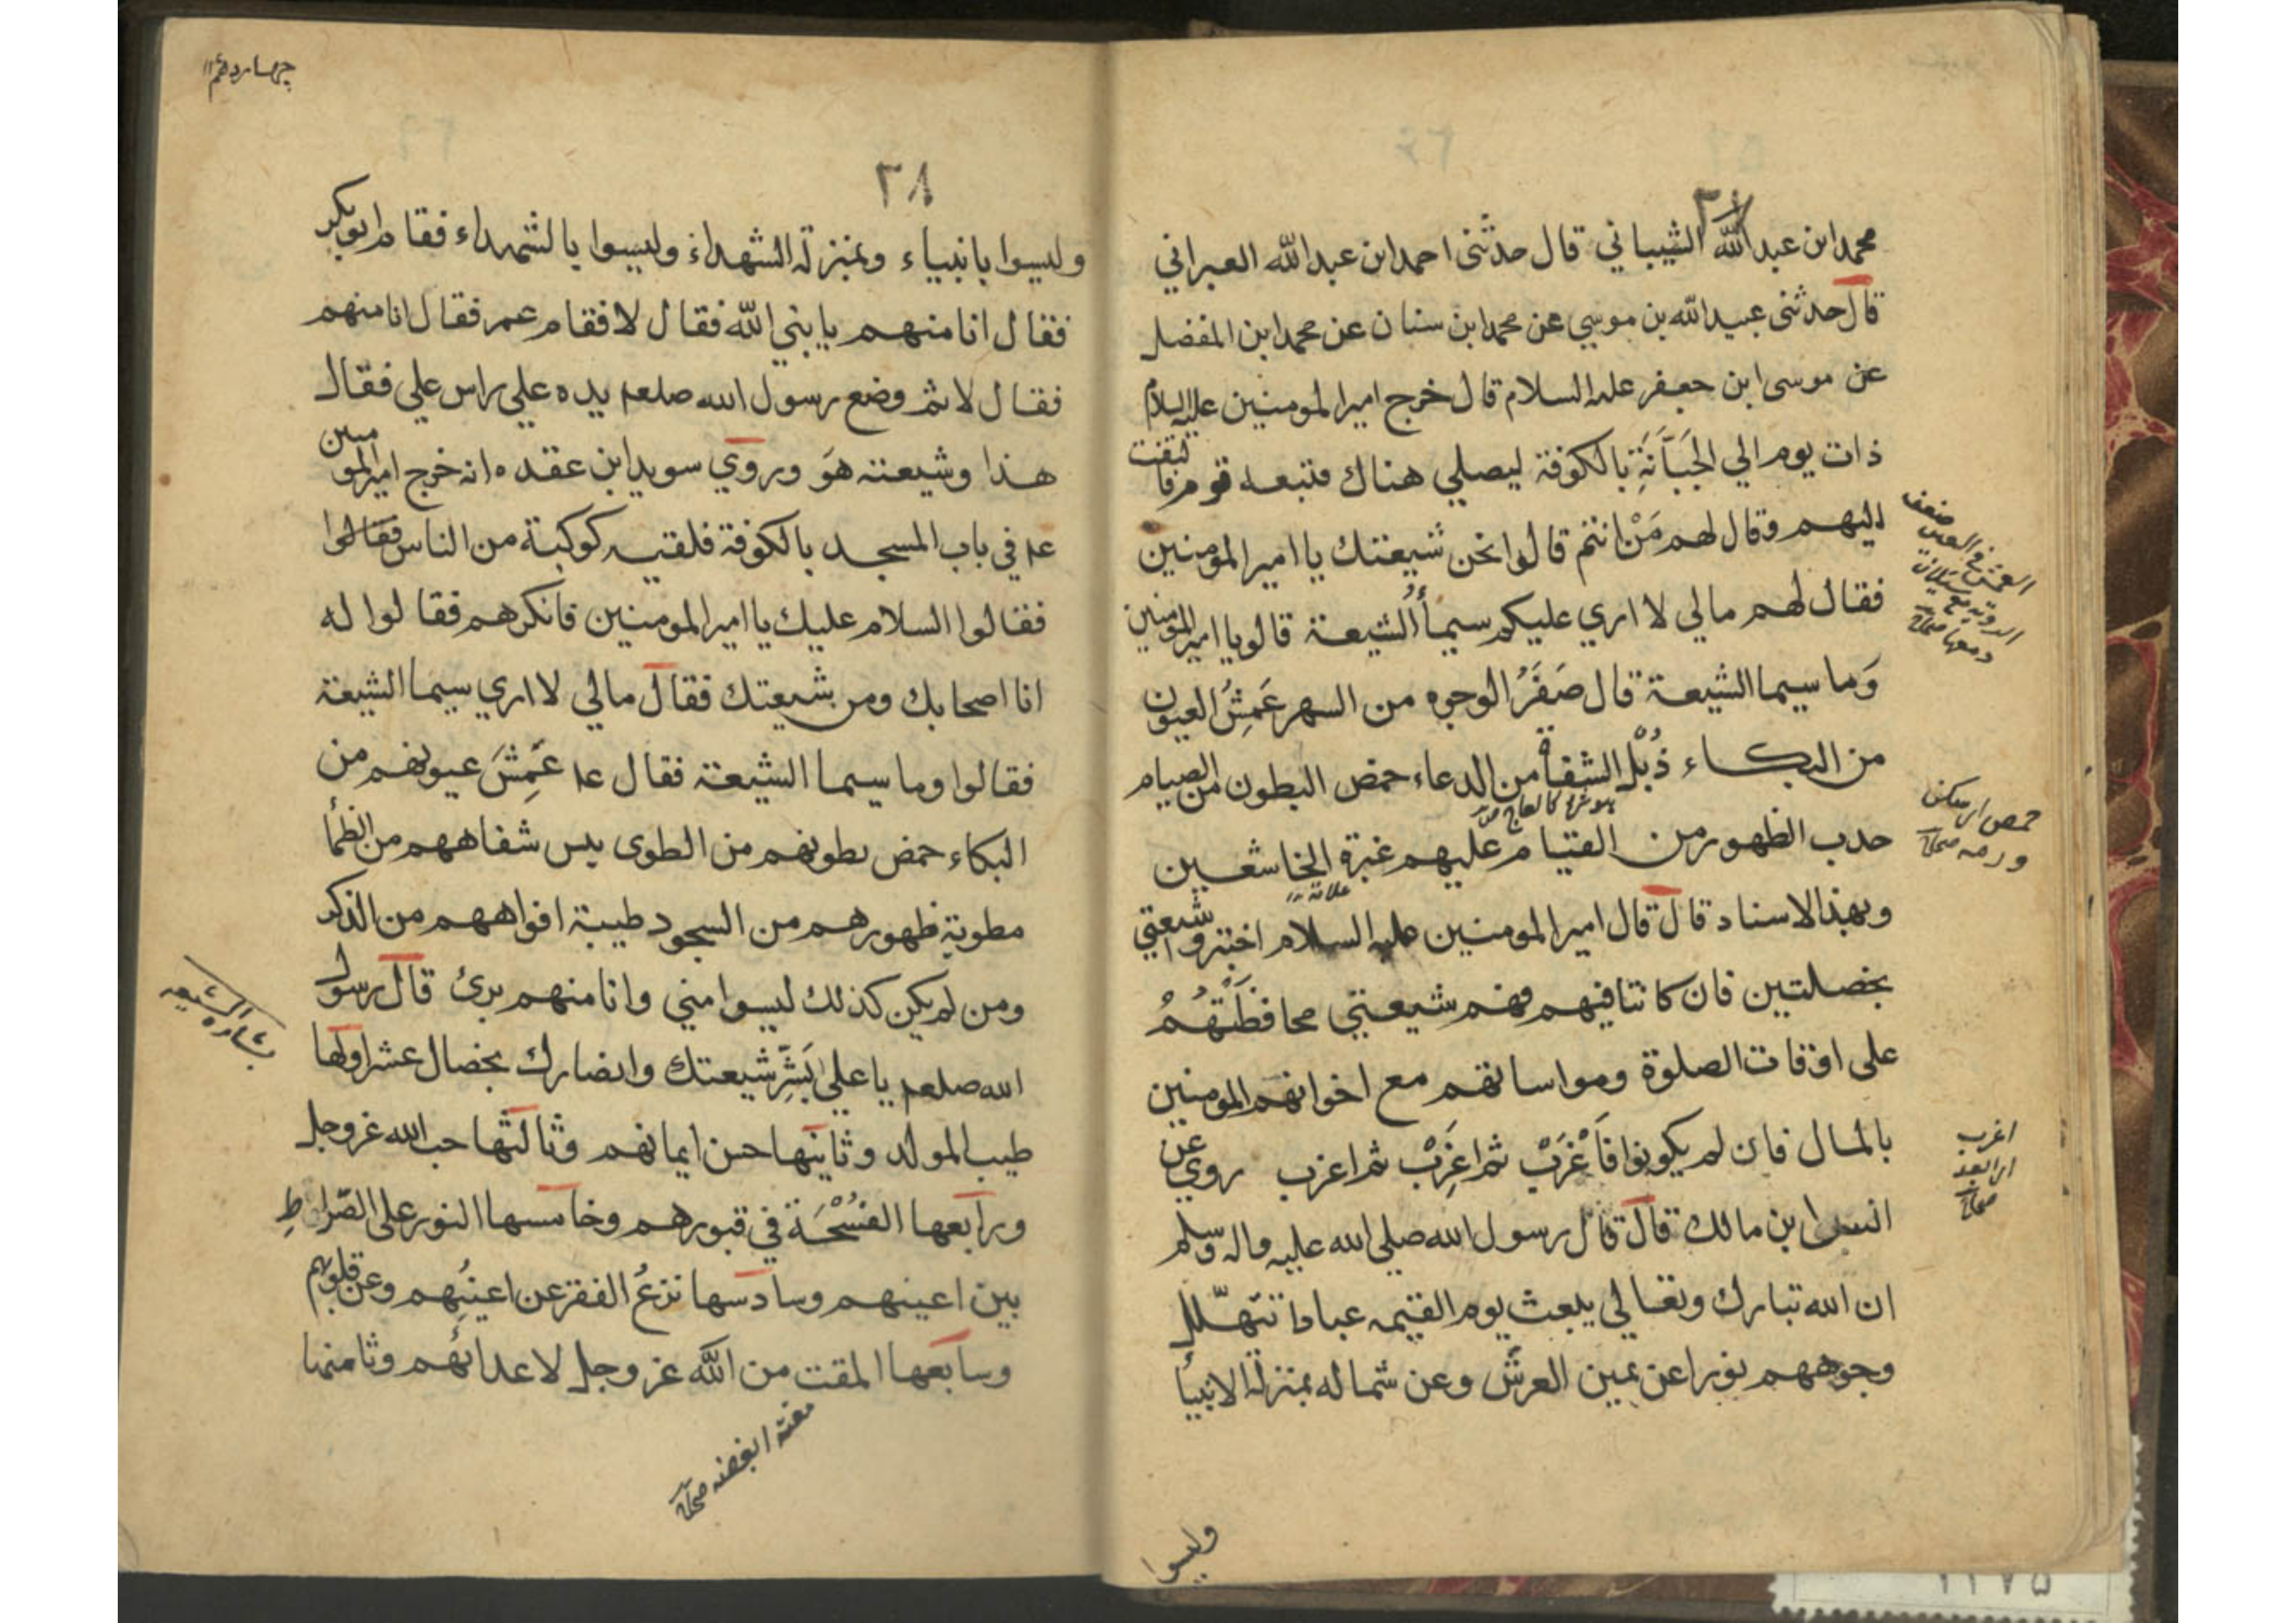 محمد ابن عبد الله الشيباني قال حدثنى احمد ابن عبد الله العبراني
قال حدثنى عبيد الله بن موسي عن محمد ابن سنان عن محمد ابن المفضل
عن موسى ابن جعفر عليه السلام قال خرج امير المومنين عليه السلام
ذات يوم الي الجَبَّانَةِ بالكوفة ليصلي هناك فتبعه قوم فالتفت
اليهم وقال لهم مَنْ انتم قالوا نحن شيعتك يا امير المؤمنين
فقال لهم مالي لا اري عليكم سيمأ الشيعة قالو يا امير المؤمنين
وَما سيما الشيعة قال صَفَرُ الوجوه من السهر عَمِشُ العيون
من البكاء ذُبْل الشفاة من الدعاء خمص البطون من الصيام
حدب الظهور من القيام عليهم غبرة الخاشعين
وبهذا الاسناد قال قال امير المومنين عليه السلام اختبروا شيعتي
بخصلتين فان كانتا فيهم فهم شيعتي محافظَتُهُمْ
على اوقات الصلوة ومواساتهم مع اخوانهم المومنين
بالمال فان لم يكونوا فَأَعْزَبْ ثم اعزَبْ ثم اعزب روي عن
انس ابن مالك قال قال رسول الله صلي الله عليه واله وسلم
ان الله تبارك وتعالي يبعث يوم القيمه عبادا تتهلل
وجوههم نورا عن يمين العرش وعن شماله بمنزلة الانبيأ
وليسوا
العمش في العين ضعف
الروية مع سيلان
دمعها صحاح
ورمه صحاح
اغرب
اي ابعد
صحاح
چهاردهم
٣٨
وليسوا بانبياء وبمنزلة الشهداء وليسوا بالشهداء فقام ابو بكر
فقال انا منهم يا نبي الله فقال لا فقام عمر فقال انا منهم
فقال لا ثم وضع رسول الله صلعم يده علي راس علي فقال
هذا وشيعته هوَ وروي سويد ابن عقده انه خرج امير المومنين
عم في باب المسجد بالكوفة فلقيه كوكبة من الناس فقالوا
فقالوا السلام عليك يا امير المومنين فانكرهم فقالوا له
انا اصحابك ومن شيعتك فقال مالي لا اري سيما الشيعة
فقالوا وما سيما الشيعة فقال عم عَمِشَ عيونهم من
البكاء خمص بطونهم من الطوى يبس شفاههم من الظمأ
مطوية ظهورهم من السجود طيبة افواههم من الذكر
ومن لم يكن كذلك ليسوا مني وانا منهم برئ قال رسول
الله صلعم يا علي بَشِّر شيعتك وانصارك بخصال عشر اولها
طيب المولد وثانيها حسن ايمانهم وثالثها حب الله عز وجل
ورابعها الفُسْحَة في قبورهم وخامسها النور على الصراط
بين اعينهم وسادسها نزعُ الفقر عن اعينِهم وعن قلوبهم
وسابعها المقت من الله عز وجل لاعدائهم وثامنها
بشارة الشيعه
مقته ابغضه صحاح